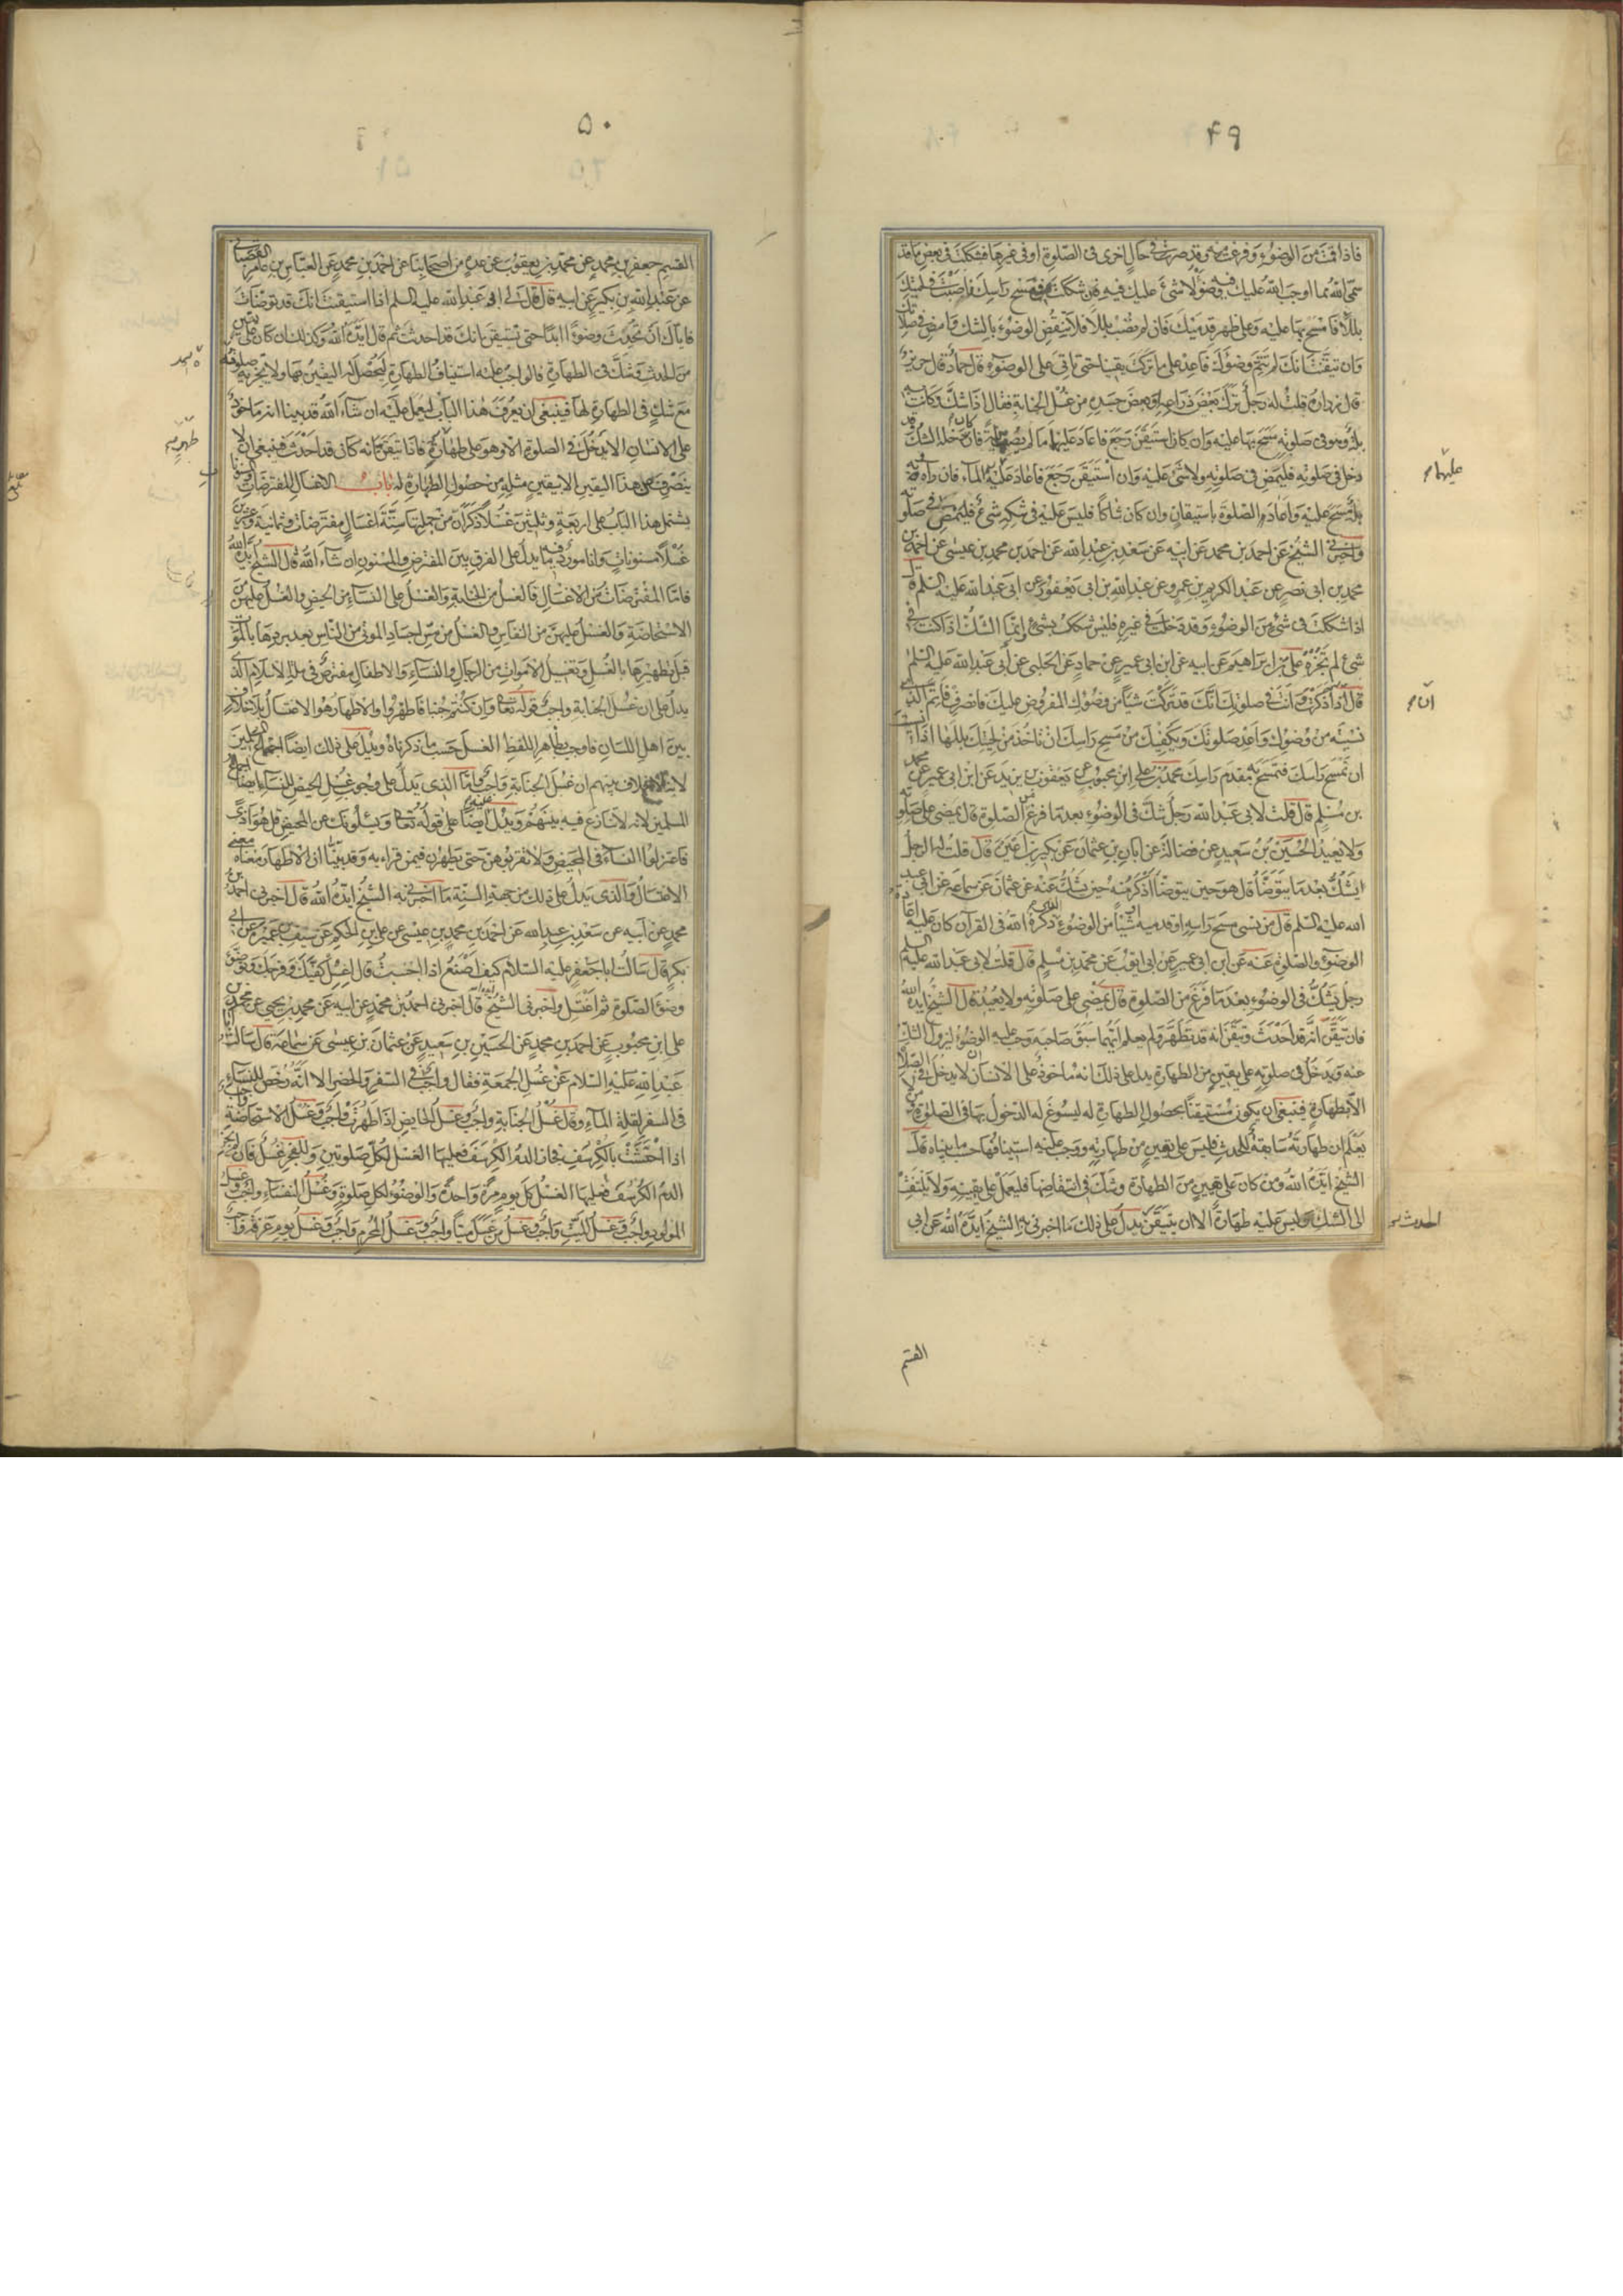 ٤٩
فاذا قمت من الوضوء وفرغت منه وقد صرت في حال اخرى في الصلوة او في غيرها فشككت في بعض ما قد
سمى الله مما اوجب الله عليك فيه وضوءا لا شئ عليك فيه فان شككت في مسح راسك فاصبت في لحيتك
بللا فامسح بها عليه وعلى ظهر قدميك فان لم تصب بللا فلا تنقض الوضوء بالشك وامض في صلاتك
وان تيقنت انك لم تتم وضوئك فاعد على ما تركت يقينا حتى تاتي على الوضوء قال حماد قال حريز
قال زرارة قلت له رجل ترك بعض ذراعه او بعض جسده من غسل الجنابة فقال اذا شك وكانت به
بلة وهو في صلوته مسح بها عليه وان كان استيقن رجع فاعاد عليهما ما لم يصب بلة فان دخله الشك وقد
دخل في صلوته فليمض في صلوته ولا شئ عليه وان استيقن رجع فاعاد عليه الماء فان رآه وبه
بلة مسح عليه واعاد الصلوة باستيقان وان كان شاكا فليس عليه في شكه شئ فليمض في صلوته
واخبرني الشيخ عن احمد بن محمد عن ابيه عن سعد بن عبد الله عن احمد بن محمد بن عيسى عن احمد بن
محمد بن ابي نصر عن عبد الكريم بن عمرو عن عبد الله بن ابي يعفور عن ابي عبد الله عليه السلم قال
اذا شككت في شئ من الوضوء وقد دخلت في غيره فليس شكك بشئ وانما الشك اذا كنت في
شئ لم تجزه علي بن ابراهيم عن ابيه عن ابن ابي عمير عن حماد عن الحلبي عن أبي عبد الله عليه السلم
قال اذا ذكرت وانت في صلوتك انك قد تركت شيئا من وضوئك المفروض عليك فانصرف فاتم الذي
نسيته من وضوئك واعد صلوتك ويكفيك من مسح راسك ان تاخذ من لحيتك بللها اذا نسيت
ان تمسح راسك فتمسح به مقدم راسك محمد بن علي ابن محبوب عن يعقوب بن يزيد عن ابن ابي عمير عن محمد
بن مسلم قال قلت لابي عبد الله رجل شك في الوضوء بعد ما فرغ من الصلوة قال يمضي على صلوته
ولا يعيد الحسين بن سعيد عن فضالة عن ابان بن عثمان عن بكير بن اعين قال قلت له الرجل
يشك بعد ما يتوضأ قال هو حين يتوضأ اذكر منه حين يشك عنه عن عثمان عن سماعة عن ابي عبد
الله عليه السلم قال من نسي مسح راسه او قدميه او شيئا من الوضوء الذي ذكره الله في القرآن كان عليه اعادة
الوضوء والصلوة عنه عن ابن ابي عمير عن ابي ايوب عن محمد بن مسلم قال قلت لابي عبد الله عليه السلم
رجل يشك في الوضوء بعد ما فرغ من الصلوة قال يمضي على صلوته ولا يعيد قال الشيخ ايده الله
فان تيقن انه قد احدث وتيقن انه قد تطهر ولم يعلم ايهما سبق صاحبه وجب عليه الوضوء ليزول الشك
عنه ويدخل في صلوته على يقين من الطهارة يدل على ذلك انه ماخوذ على الانسان ان لا يدخل في الصلاة
الا بطهارة فينبغي ان يكون مستيقنا بحصول الطهارة له ليسوغ له الدخول بها في الصلوة ومن لا
يعلم ان طهارته سابقة للحدث فليس على يقين من طهارته ووجب عليه استينافها حسب ما بيناه قال
الشيخ ايده الله ومن كان على يقين من الطهارة وشك في انتقاضها فليعمل على يقينه ولا يلتفت
الى الشك وليس عليه طهارة الا ان يتيقن يدل على ذلك ما اخبرني به الشيخ ايده الله عن ابي
عليهما
ان
الحدث
القسم
٥٠
القسم جعفر بن محمد عن محمد بن يعقوب عن عدة من اصحابنا عن احمد بن محمد عن العباس بن عامر القصباني
عن عبد الله بن بكير عن ابيه قال قال لي ابو عبد الله عليه السلم اذا استيقنت انك قد توضات
فاياك ان تحدث وضوءا ابدا حتى تستيقن انك قد احدثت ثم قال ايده الله وكذلك ان كان على يقين
من الحدث وشك في الطهارة فالواجب عليه استيناف الطهارة ليحصل له اليقين بها ولا يجزيه صلوته
مع شك في الطهارة لها فينبغي ان يعرف هذا الباب ليعمل عليه ان شاء الله قد بينا انه ماخوذ
على الانسان الا يدخل في الصلوة الا وهو على طهارة فاذا تيقن انه كان قد احدث فينبغي ان لا
ينصرف عن هذا اليقين الا بيقين مثله من حصول الطهارة له باب الاغسال المفترضات
يشتمل هذا الباب على اربعة وثلثين غسلا ذكر ان من جملتها ستة اغسال مفترضات وثمانية وعشرين
غسلا مسنونات وانا مورد فيه ما يدل على الفرق بين المفترض والمسنون ان شاء الله قال الشيخ ايده الله
فاما المفترضات من الاغسال فالغسل من الجنابة والغسل على النساء من الحيض والغسل عليهن من
الاستحاضة والغسل عليهن من النفاس والغسل من مس اجساد الموتى من الناس بعد بردها بالموت
قبل تطهيرها بالغسل وتغسيل الاموات من الرجال والنساء والاطفال مفترض في ملة الاسلام الذي
يدل على ان غسل الجنابة واجب قوله تعالى وان كنتم جنبا فاطهروا والاطهار هو الاغتسال بلا خلاف
بين اهل اللسان فاوجب بظاهر اللفظ الغسل حسب ما ذكرناه ويدل على ذلك ايضا اجماع المسلمين
لانه لا خلاف بينهم ان غسل الجنابة واجب واما الذي يدل على وجوب غسل الحيض للنساء ايضا اجماع
المسلمين لانه لا تنازع فيه بينهم ويدل ايضا عليه قوله تعالى ويسئلونك عن المحيض قل هو اذى
فاعتزلوا النساء في المحيض ولا تقربوهن حتى يطهرن فيمن قراء به وقد بينا ان الاطهار معناه معنى
الاغتسال والذي يدل على ذلك من جهة السنة ما اخبرني به الشيخ ايده الله قال اخبرني احمد بن
محمد عن ابيه عن سعد بن عبد الله عن احمد بن محمد بن عيسى عن علي بن الحكم عن سيف بن عميرة عن ابي
بكر قال سالت ابا جعفر عليه السلام كيف اصنع اذا اجنبت قال اغسل كفيك وفرجك وتوضأ
وضوء الصلوة ثم اغتسل واخبرني الشيخ ايده الله قال اخبرني احمد بن محمد عن ابيه عن محمد بن يحيى عن محمد بن
علي ابن محبوب عن احمد بن محمد عن الحسين بن سعيد عن عثمان بن عيسى عن سماعة قال سالت ابا
عبد الله عليه السلام عن غسل الجمعة فقال واجب في السفر والحضر الا انه رخص للنساء
في السفر لقلة الماء وقال غسل الجنابة واجب وغسل الحايض اذا طهرت واجب وغسل الاستحاضة واجب
اذا احتشت بالكرسف فجاز الدم الكرسف فعليها الغسل لكل صلوتين وللفجر غسل فان لم يجز
الدم الكرسف فعليها الغسل كل يوم مرة واحدة والوضوء لكل صلوة وغسل النفساء واجب وغسل
المولود واجب وغسل الميت واجب وغسل من غسل ميتا واجب وغسل المحرم واجب وغسل يوم عرفة واجب